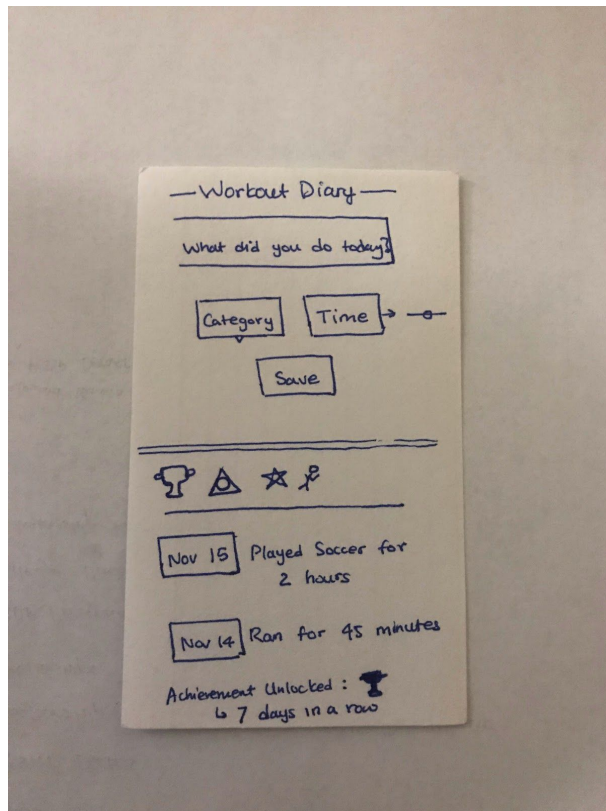 Workout Diary
What did you do today?
Category
Time
Save
Nov 15
Played Soccer for
2 hours
Nov 14
Ran for 45 minutes
Achievement Unlocked :
↳ 7 days in a row